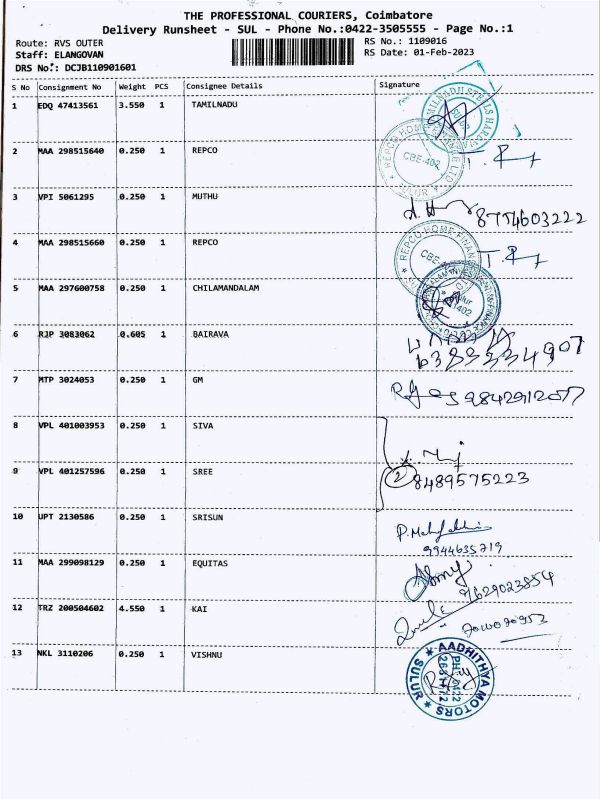 THE PROFESSIONAL COURIERS, Coimbatore
Delivery Runsheet - SUL - Phone No.:0422-3505555 - Page No.:1
Route: RVS OUTER
RS No.: 1109016
Staff: ELANGOVAN
RS Date: 01-Feb-2023
DRS No.: DCJB110901601
S No Consignment No Weight PCS Consignee Details Signature
1 EDQ 47413561 3.550 1 TAMILNADU
2 MAA 298515640 0.250 1 REPCO
REPCO HOME
CBE-402
SULUR
3 VPI 5061295 0.250 1 MUTHU
8754603222
4 MAA 298515660 0.250 1 REPCO
REPCO HOME FINANCE
5 MAA 297600758 0.250 1 CHILAMANDALAM
6 RJP 3083062 0.605 1 BAIRAVA
6383334907
7 MTP 3024053 0.250 1 GM
8 VPL 401003953 0.250 1 SIVA
9 VPL 401257596 0.250 1 SREE
2 8489575223
10 UPT 2130586 0.250 1 SRISUN
9944635719
11 MAA 299098129 0.250 1 EQUITAS
9629023854
12 TRZ 200504602 4.550 1 KAI
13 NKL 3110206 0.250 1 VISHNU
AADHITHYA MOTORS
SULUR